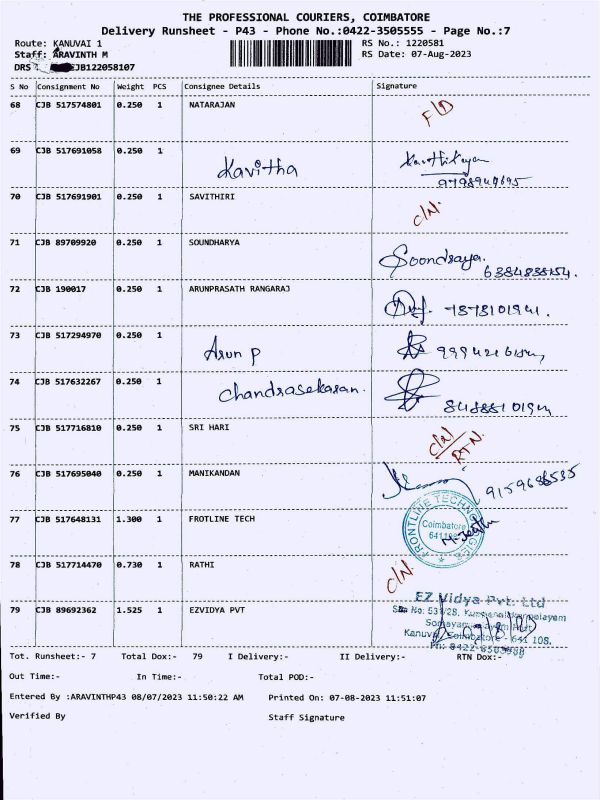 THE PROFESSIONAL COURIERS, COIMBATORE
Delivery Runsheet - P43 - Phone No.:0422-3505555 - Page No.:7
Route: KANUVAI 1 RS No.: 1220581
Staff: ARAVINTH M RS Date: 07-Aug-2023
DRS EJB122058107
S No Consignment No Weight PCS Consignee Details Signature
68 CJB 517574801 0.250 1 NATARAJAN F/D
69 CJB 517691058 0.250 1 Kavitha Karthikeyan
70 CJB 517691901 0.250 1 SAVITHIRI C/N.
71 CJB 89709920 0.250 1 SOUNDHARYA Soondraya.
6384838154.
72 CJB 190017 0.250 1 ARUNPRASATH RANGARAJ 7878101941.
73 CJB 517294970 0.250 1 Arun P
74 CJB 517632267 0.250 1 Chandrasekaran.
75 CJB 517716810 0.250 1 SRI HARI C/N/
RTN.
76 CJB 517695040 0.250 1 MANIKANDAN 9159686535
77 CJB 517648131 1.300 1 FROTLINE TECH FRONTLINE TECHNOLOGIES
Coimbatore
78 CJB 517714470 0.730 1 RATHI C/N.
EZ Vidya Pvt. Ltd
79 CJB 89692362 1.525 1 EZVIDYA PVT
Kanuvai, Coimbatore - 641 108.
Tot. Runsheet:- 7 Total Dox:- 79 I Delivery:- II Delivery:- RTN Dox:-
Out Time:- In Time:- Total POD:-
Entered By :ARAVINTHP43 08/07/2023 11:50:22 AM Printed On: 07-08-2023 11:51:07
Verified By Staff Signature